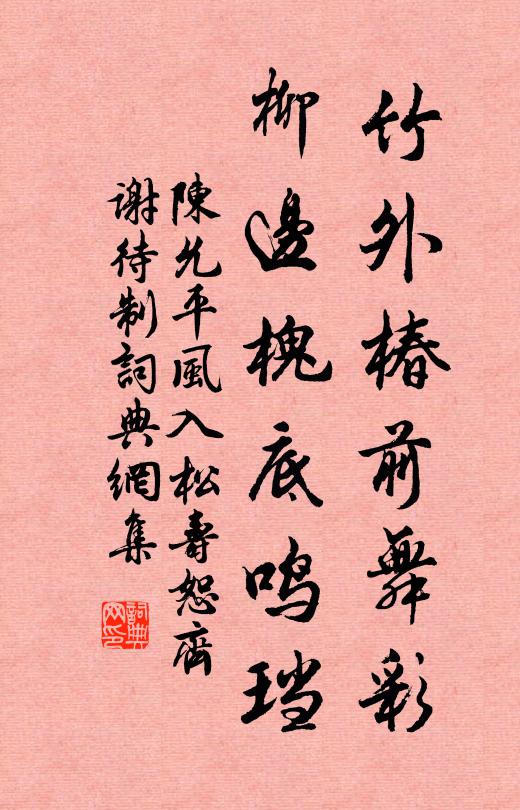 竹外椿前舞彩
柳邊槐底鸣珰
陳允平風入松壽恕齋
謝待制詞典網集
詞典網印